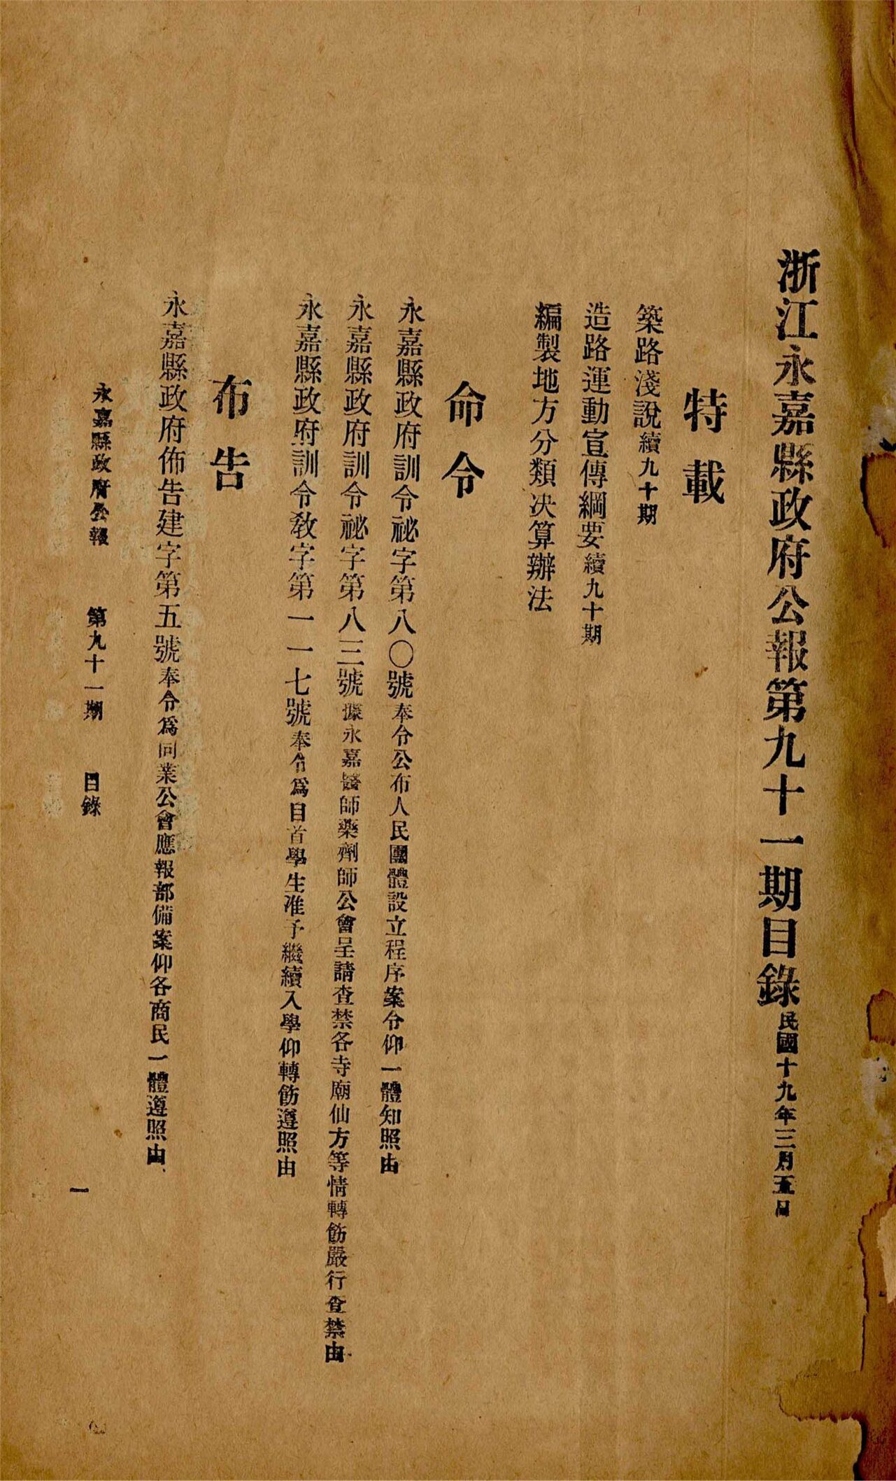 浙江永嘉縣政府公報第九十一期目錄民國十九年三月五日
特載
築路淺說續九十期
造路運動宣傳綱要續九十期
編製地方分類决算辦法
命令
永嘉縣政府訓令祕字第八〇號奉令公布人民團體設立程序案令仰一體知照由
永嘉縣政府訓令祕字第八三號據永嘉醫師藥劑師公會呈請查禁各寺廟仙方等情轉飭嚴行查禁由
永嘉縣政府訓令教字第一一七號奉令爲自首學生准予繼續入學仰轉飭遵照由
布告
永嘉縣政府佈告建字第五號奉令爲同業公會應報部備案仰各商民一體遵照由
永嘉縣政府公報 第九十一期 目錄
一